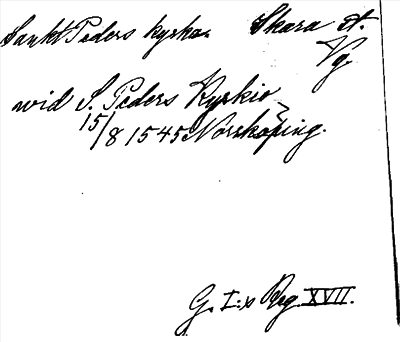 Sankt Peders kyrka. Skara st.
Vg.
wid S. Peders Kyrkio
15/8 1545 Norrköping.
G. I:s Reg. XVII.